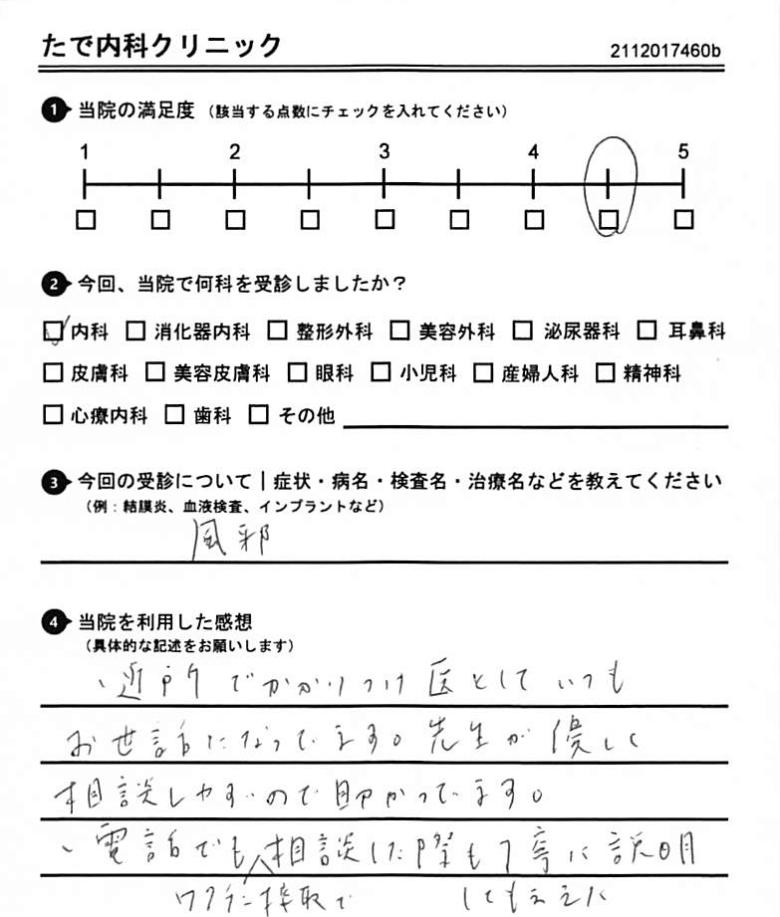 たで内科クリニック 2112017460b
1 当院の満足度（該当する点数にチェックを入れてください）
1 2 3 4 5
2 今回、当院で何科を受診しましたか？
内科 消化器内科 整形外科 美容外科 泌尿器科 耳鼻科
皮膚科 美容皮膚科 眼科 小児科 産婦人科 精神科
心療内科 歯科 その他
3 今回の受診について｜症状・病名・検査名・治療名などを教えてください
（例：結膜炎、血液検査、インプラントなど）
風邪
4 当院を利用した感想
（具体的な記述をお願いします）
、近所でかかりつけ医としていつも
お世話になってます。先生が優しく
相談しやすいので助かってます。
、電話でも相談した際も丁寧に説明
ワクチン接取で してもらえた